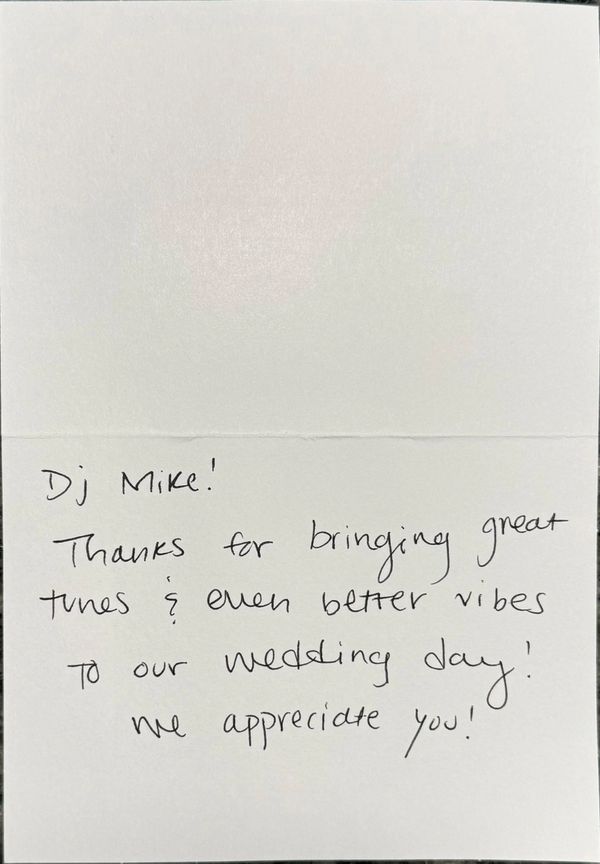 Dj Mike!
Thanks for bringing great
tunes & even better vibes
to our wedding day!
we appreciate you!